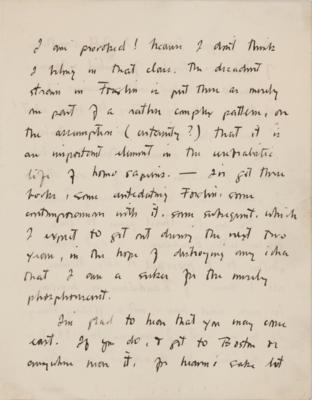 I am provoked! heaven I don't think
I belong in that class. The decadent
strain in Foxfire is put there as merely
one part of a rather complex pattern, on
the assumption (certainty?) that it is
an important element in the
life of homo sapiens. — I've got three
books, some antedating Foxfire, some
contemporaneous with it, some subsequent, which
I expect to get out during the next two
years, in the hope of destroying any idea
that I am a sucker for the merely
phosphorescent.
I'm glad to hear that you may come
east. If you do, & get to Boston or
anywhere near it, for heaven's sake let